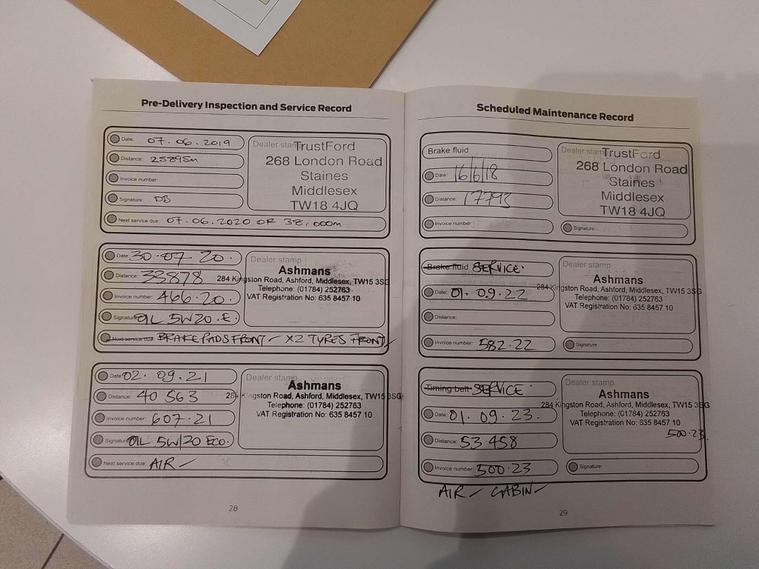 Pre-Delivery Inspection and Service Record
Date: 07.06.2019
Distance: 25895m
Invoice number:
Signature: DB
Next service due: 07.06.2020 OR 38,000m
Dealer stamp
TrustFord
268 London Road
Staines
Middlesex
TW18 4JQ
Date: 30.07.20.
Distance: 33878
Invoice number: 466.20.
Signature: OIL 5W20.E.
Next service due: BRAKE PADS FRONT / X2 TYRES FRONT
Dealer stamp
Ashmans
284 Kingston Road, Ashford, Middlesex, TW15 3SG
Telephone: (01784) 252763
VAT Registration No: 635 8457 10
Date: 02.09.21
Distance: 40 563
Invoice number: 607.21
Signature: OIL 5W/20 ECO.
Next service due: AIR
Dealer stamp
Ashmans
284 Kingston Road, Ashford, Middlesex, TW15 3SG
Telephone: (01784) 252763
VAT Registration No: 635 8457 10
28
Scheduled Maintenance Record
Brake fluid
Date: 16/6/18
Distance: 17793
Invoice number:
Dealer stamp
TrustFord
268 London Road
Staines
Middlesex
TW18 4JQ
Signature:
Brake fluid SERVICE.
Date: 01.09.22
Distance:
Invoice number: 582.22
Dealer stamp
Ashmans
284 Kingston Road, Ashford, Middlesex, TW15 3SG
Telephone: (01784) 252763
VAT Registration No: 635 8457 10
Signature:
Timing belt SERVICE.
Date: 01.09.23.
Distance: 53 458
Invoice number: 500.23
Dealer stamp
Ashmans
284 Kingston Road, Ashford, Middlesex, TW15 3SG
Telephone: (01784) 252763
VAT Registration No: 635 8457 10
500.23.
Signature:
AIR CABIN
29